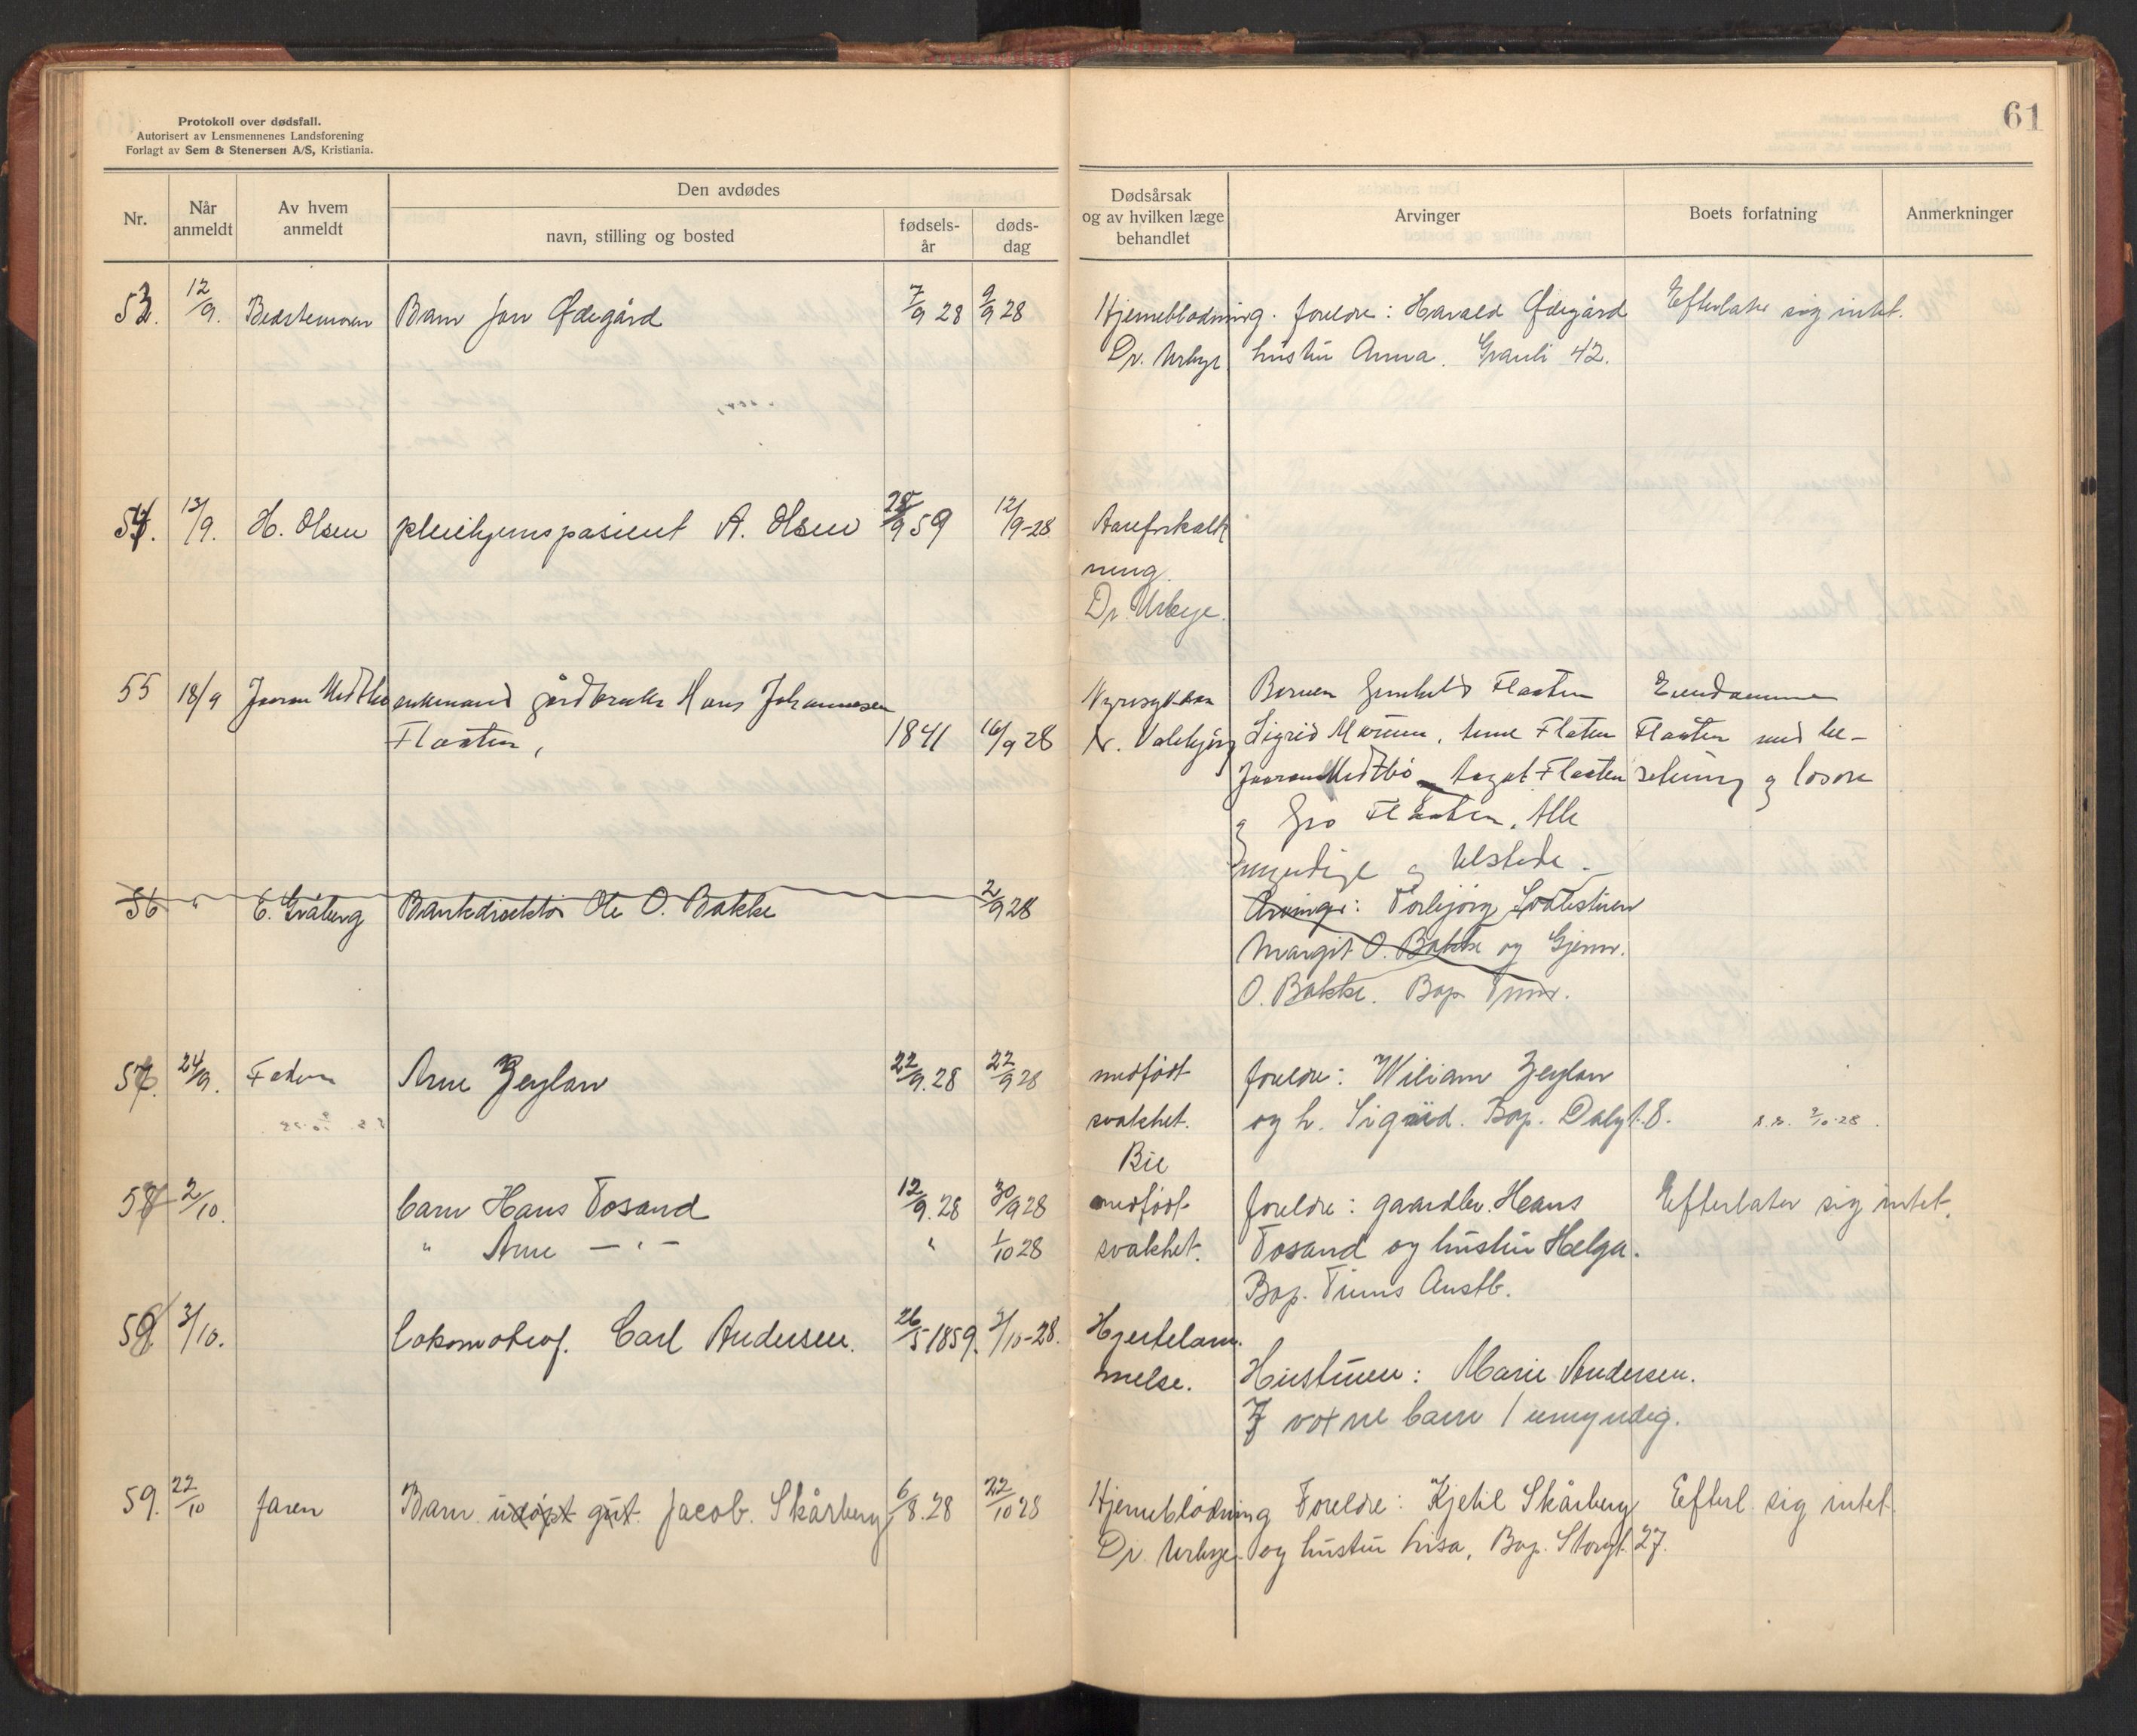 61
Protokoll over dødsfall.
Autorisert av Lensmennenes Landsforening
Forlagt av Sem & Stenersen A/S, Kristiania.
Nr.
Når anmeldt
Av hvem anmeldt
Den avdødes
navn, stilling og bosted
fødsels-år
døds-dag
Dødsårsak og av hvilken læge behandlet
Arvinger
Boets forfatning
Anmerkninger
53. 12/9. Bedstemoren Barn Jon Ødegård 7/9 28 9/9 28 Hjerneblødning. foreldre: Harald Ødegård Efterlater sig intet.
Dr. Urbye hustru Anna. Granli 42.
54. 13/9. H. Olsen pleiehjemspasient A. Olsen 28/9 59 12/9-28 Aareforkalk
ning.
Dr. Urbye.
55 18/9 Jøran Midtbø enkemand gårdbruker Hans Johannesen Nyresykdom Barnen Gunhild Flaaten Eiendommen
Flaaten, 1841 16/9 28 Sigrid, Flaten Flaaten med be-
Jøran Midtbø Flaaten setning og løsøre
og Gro Flaaten. Alle
myndige og tilstede.
56 " E. Gråberg Bankdirektør Ole O. Bakke 2/9 28 Arvinger: Torbjørg
Margit O. Bakke og Gjerm.
O. Bakke. Bop. Tinn.
57. 24/9. Faderen Arne Zeylan 22/9. 28 22/9 28 medfødt foreldre: Wiliam Zeylan
svakhet. og h. Sigrid. Bop. Dalgt. 8. s.s. 2/10-28.
Bie
58 2/10. barn Hans Tosand 12/9. 28 30/9 28 medfødt foreldre: gaardbr. Hans Efterlater sig intet.
" Arne — " — " 1/10 28 svakhet. Tosand og hustru Helga.
Bop. Tinns Austb.
59. 3/10. Lokomotivf. Carl Andersen. 26/5 1859. 2/10-28. Hjertelam-
melse. Hustruen: Marie Andersen.
7 voxne barn 1 umyndig.
59. 22/10 faren Barn udøpt gut. Jacob. Skårberg 6/8. 28 22/10 28 Hjerneblødning Foreldre: Kjetil Skårberg Efterl. sig intet.
Dr. Urbye. og hustru Lisa, Bop. Storgt. 27.